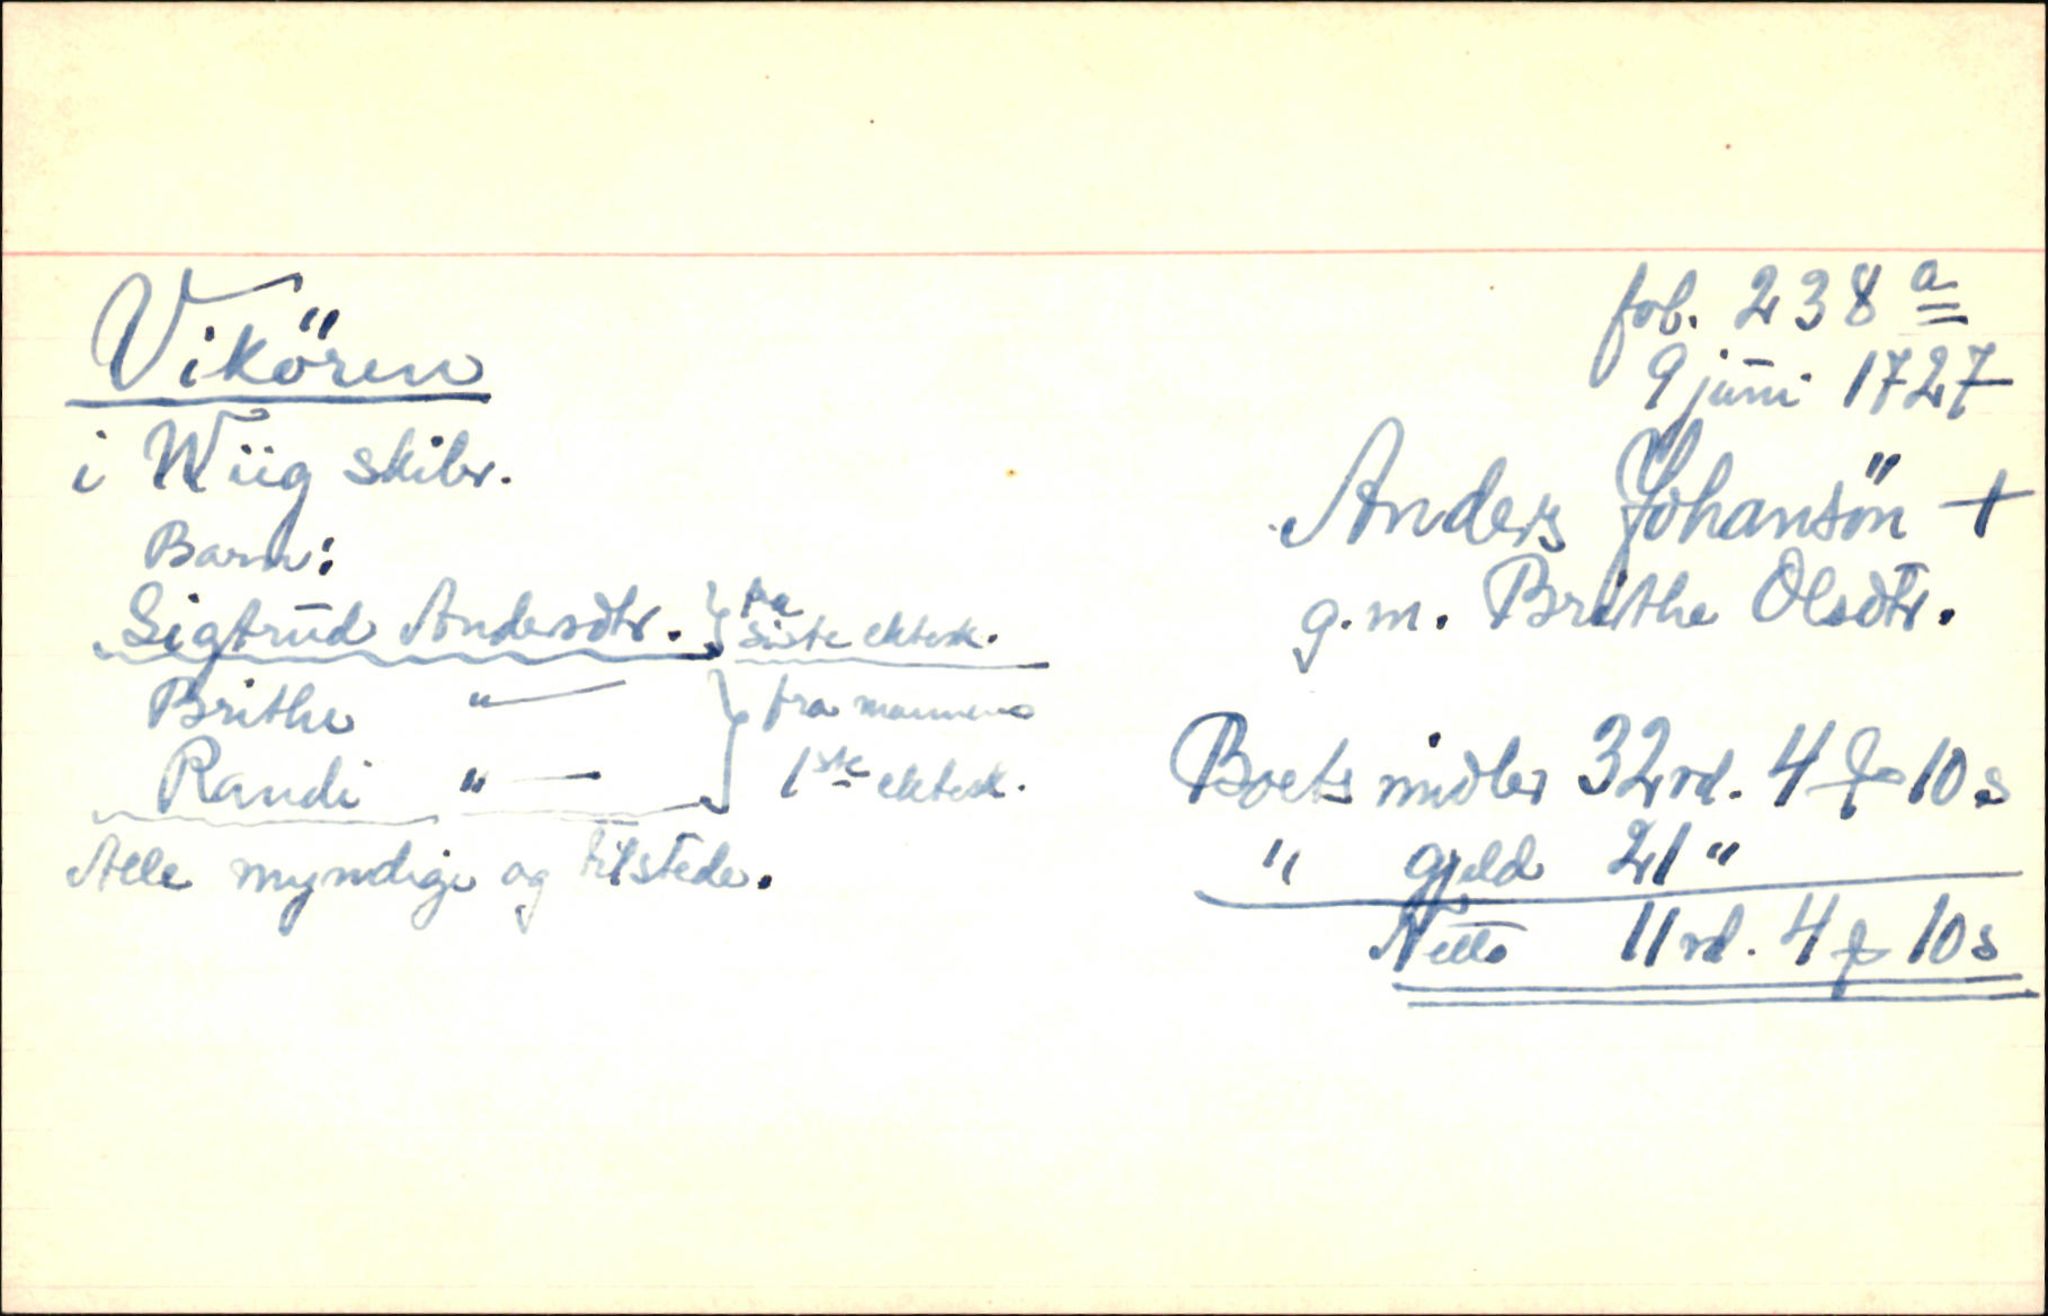 Vikören
i Wiig skibr.
Barn:
Sigtrud Andersdtr. } fra siste ektesk.
Brithe " — } fra mannens
Randi " — 1ste ektesk.
Alle myndige og tilstede.
fol. 238 a
9 juni 1727
Anders Johansön +
g.m. Brithe Olsdtr.
Boets midler 32 rd. 4 ₻ 10 s
" gjeld 21 "
Netto 11 rd. 4 ₻ 10 s